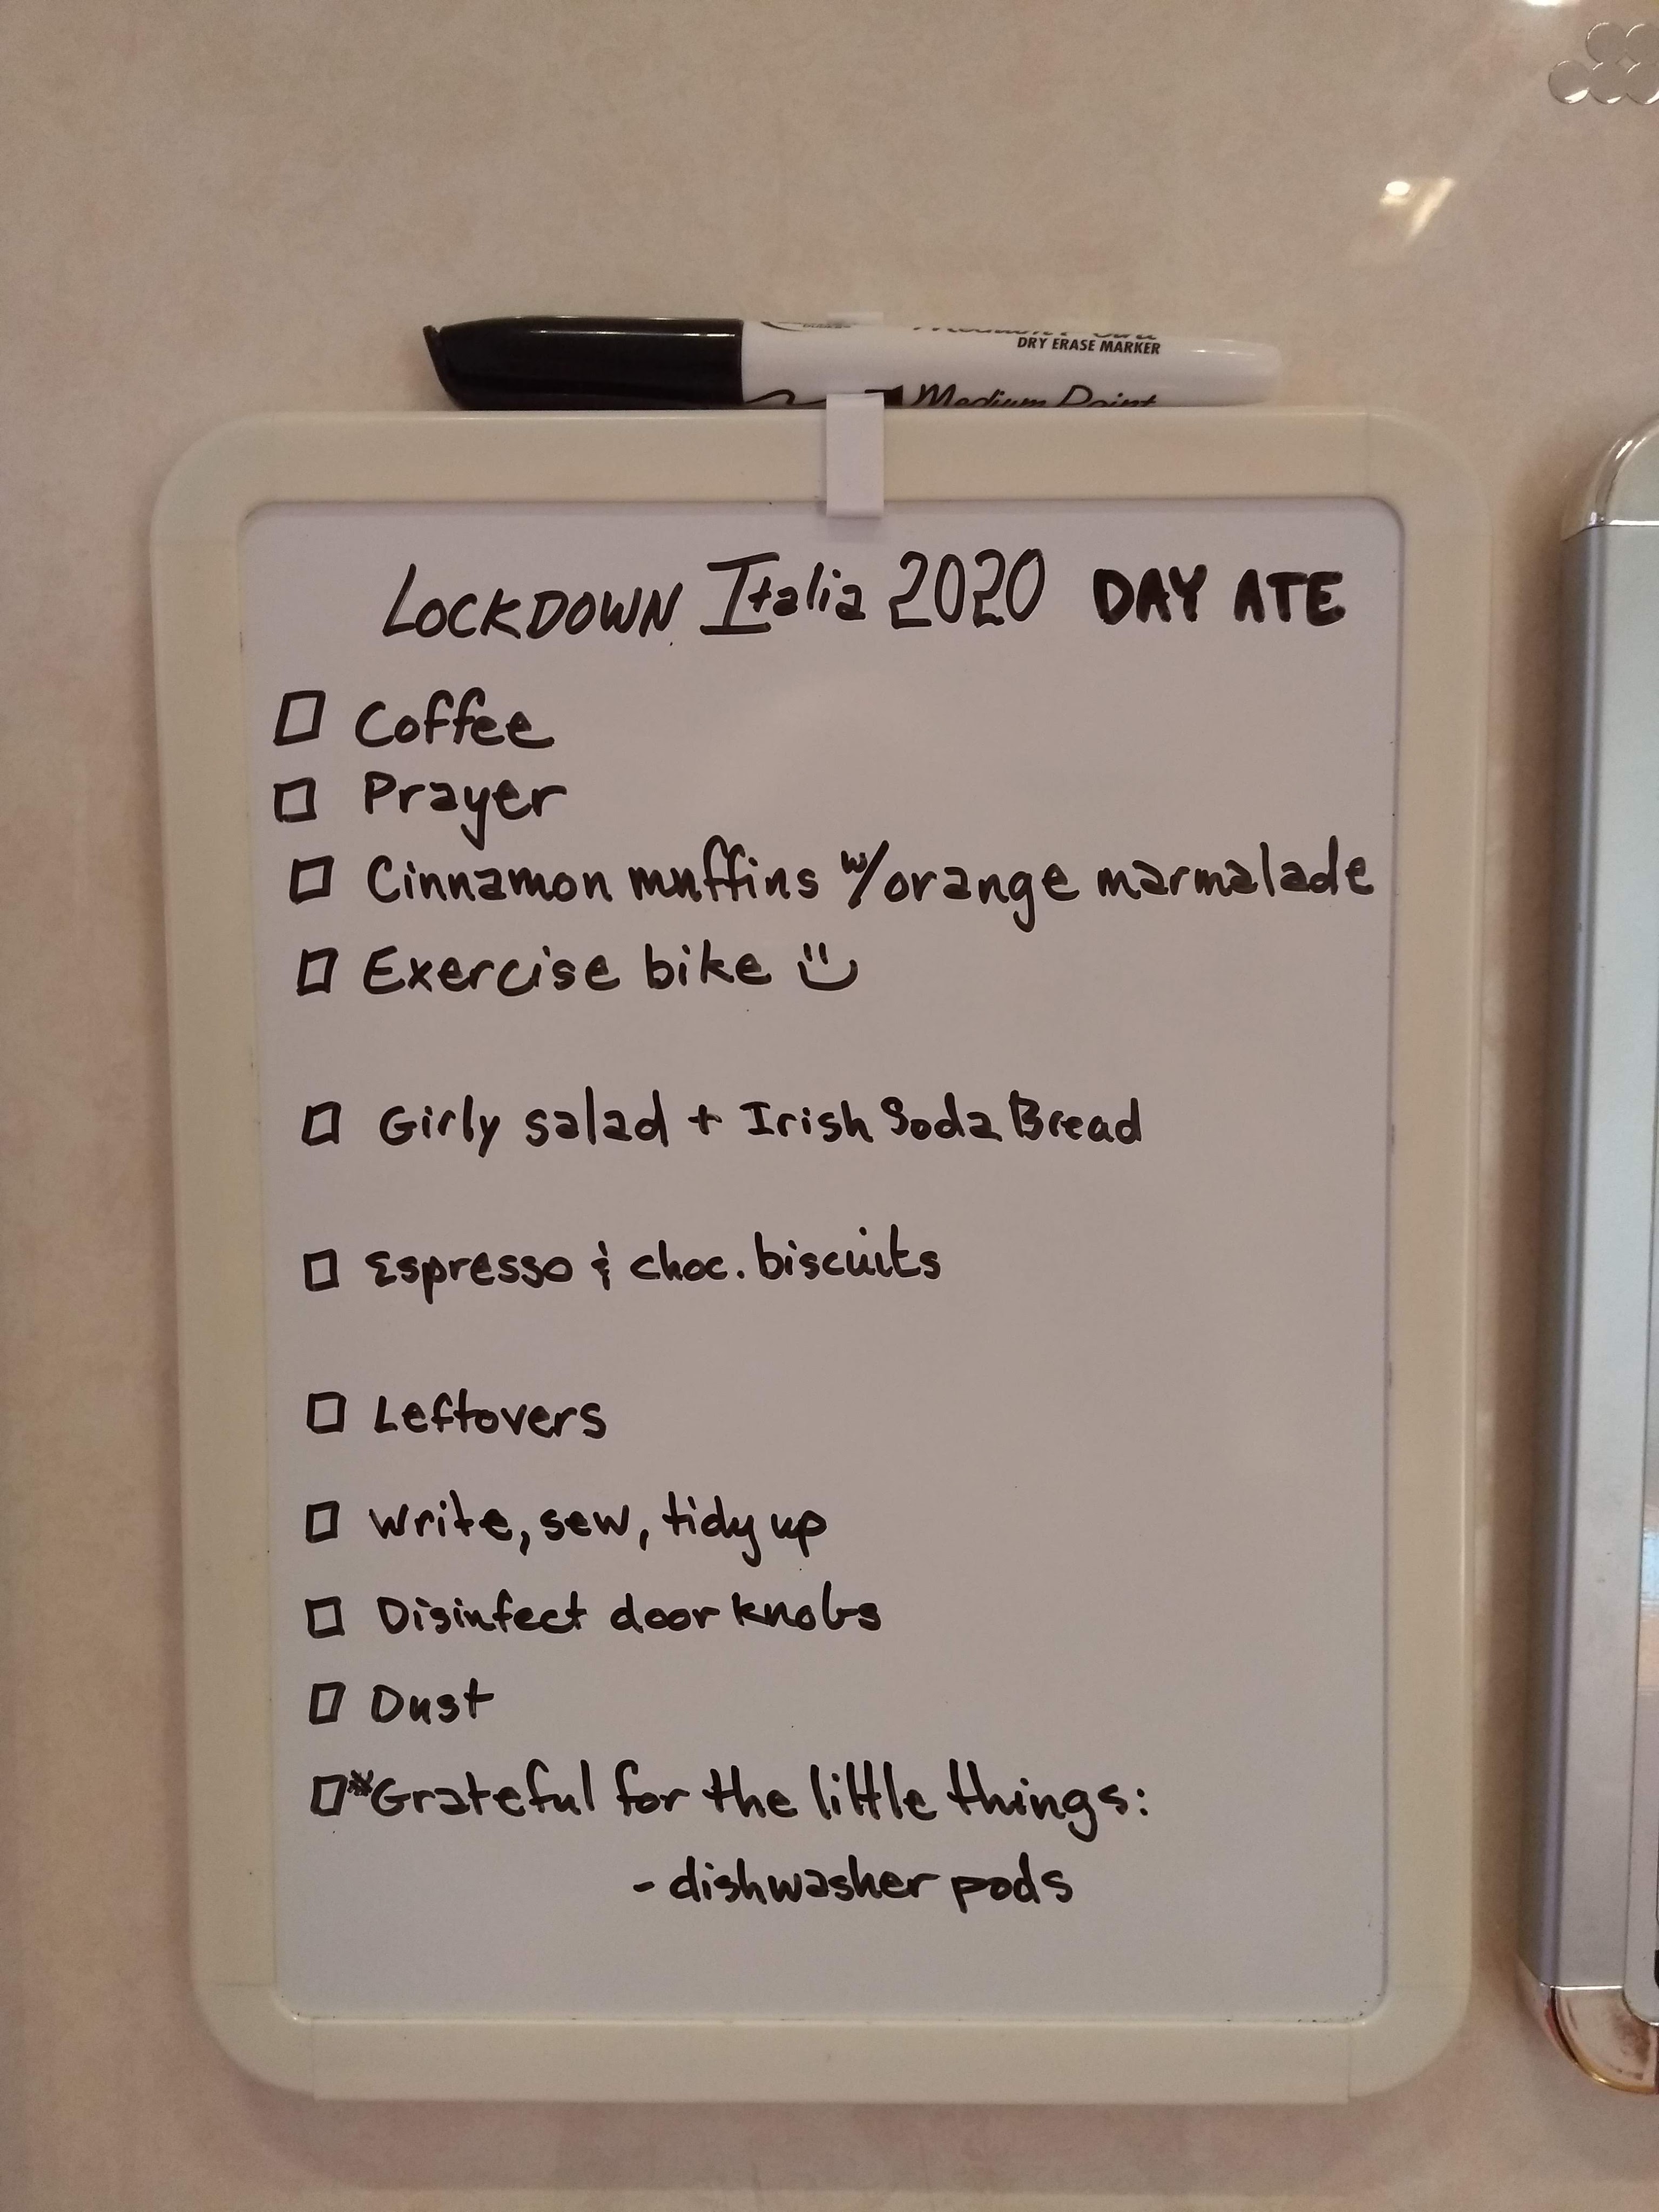 DRY ERASE MARKER
Medium Point
LOCKDOWN Italia 2020 DAY ATE
☐ Coffee
☐ Prayer
☐ Cinnamon muffins w/orange marmalade
☐ Exercise bike
☐ Girly salad + Irish Soda Bread
☐ Espresso & choc. biscuits
☐ Leftovers
☐ Write, sew, tidy up
☐ Disinfect door knobs
☐ Dust
☐ *Grateful for the little things:
- dishwasher pods